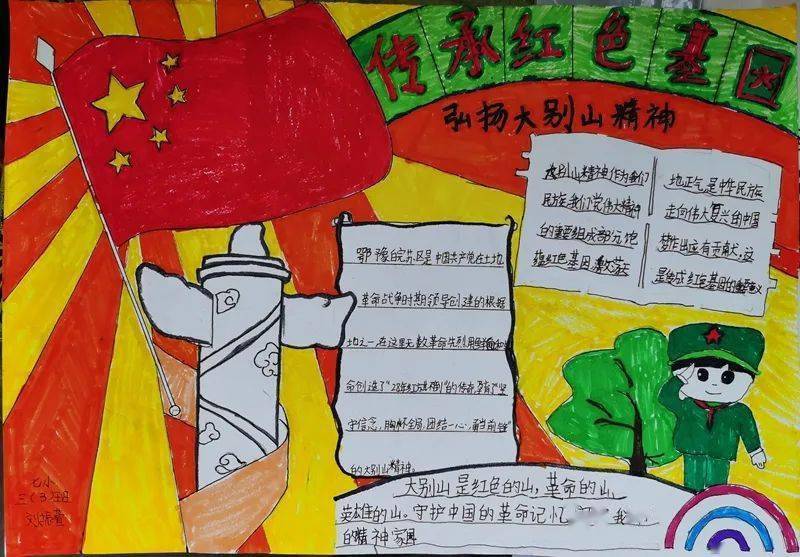 传承红色基因
弘扬大别山精神
大别山精神作为我们
民族,我们党伟大精神
的重要组成部分,饱
蕴红色基因,激荡
地正气是中华民族
走向伟大复兴的中国
梦作出应有贡献,这
是继成红色基因的重要
鄂豫皖苏区是中国共产党在土地
革命战争时期领导创建的根据
地之一,在这里无数革命先烈用
命创造了“28年红旗不倒”的传奇,孕育了“坚
守信念,胸怀全局,团结一心,勇当前锋”
的大别山精神。
大别山是红色的山,革命的山
英雄的山,守护中国的革命记忆 我
的精神家园
七小
三(3)班
刘